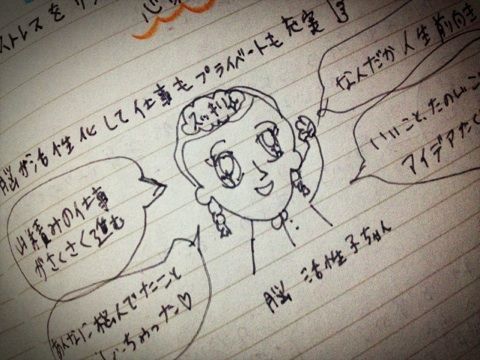 イトレスを
脳が活性化して仕事もプライベートも充実!
スッキリ
なんだか人生前向き
いいこと、たのしいこ
アイデアたく
山積みの仕事
がさくさく進む
あんなに悩んでたこと
ちゃった♡
脳 活性子ちゃん